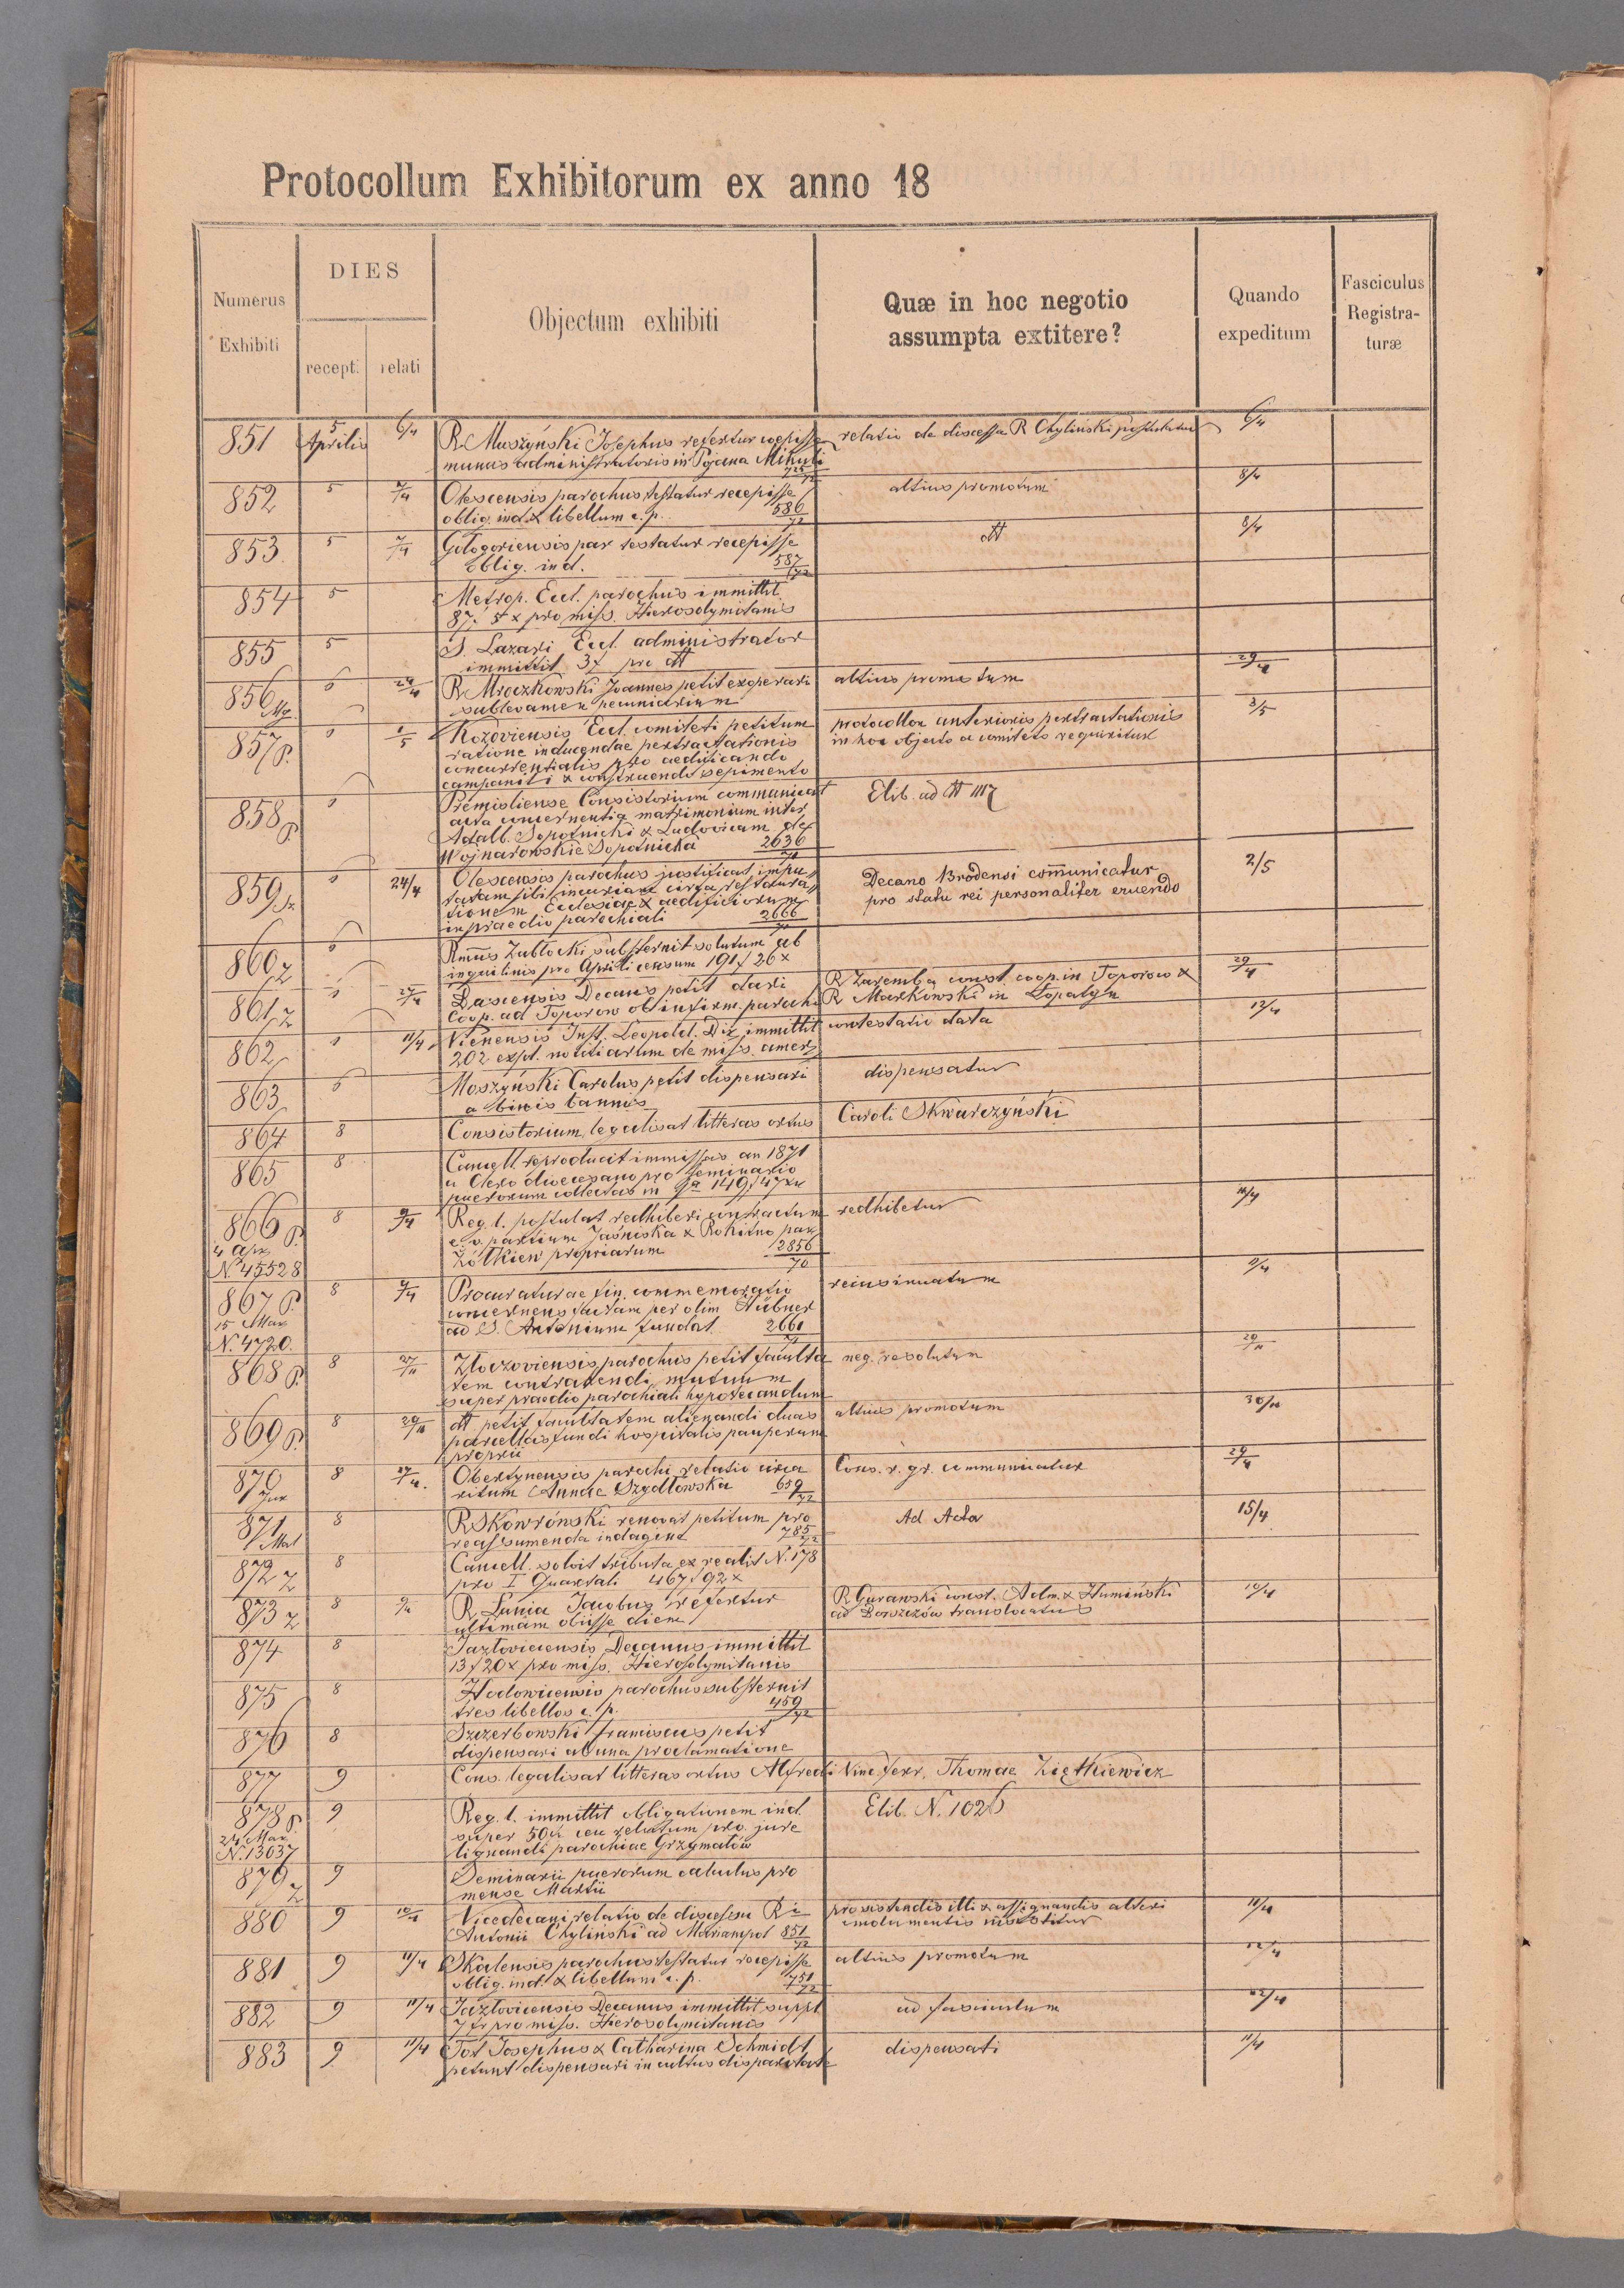 Protocollum Exhibitorum ex anno 18
Numerus Exhibiti
DIES
recept. relati
Objectum exhibiti
Quæ in hoc negotio assumpta extitere?
Quando expeditum
Fasciculus Registra-turæ
851 5 Aprilis 6/4 R. Muszyński Josephus refertur coepisse relatio de discessu R Chylinski postulatur 6/4
munus administratoris in Pojana Mikuli
852 5 7/4 Olescensis parochus testatur recepisse altius promotum 8/4
oblig. ind. & libellum c. p. 586/72
853 5 7/4 Gologoriensis par testatur recepisse dtt 8/4
oblig. ind. 587/72
854 5 Metrop. Eccl. parochus immittit
87f 5x pro miss. Hierosolymitanis
855 5 S. Lazari Eccl. administrator
immittit 3f pro dtt
856 29/4 R Mroczkowski Joannes petit exoperari altius promotum 29/4
sublevamen pecuniarium
857 P. 1/5 Kozoviensis Eccl. comiteti petitum protocollon anterioris pertractationis 3/5
ratione inducendae pertractationis in hoc objecto a comiteto requiritur
concurrentialis pro aedificando
campanili & construendo sepimento
858 P. Premisliense Consistorium communicat Elib. ad
acta concernentia matrimonium inter
Adalb. Sopotnicki & Ludovicam de
Wojnarowskie Sopotnicka 2636/71
859 24/4 Olescensis parochus justificat impu Decano Brodensi com̄unicatur 2/5
tatam sibi incuriam circa restaura pro statu rei personaliter eruendo
tionem Ecclesiae & aedificiorum
in praedio parochiali 2666/71
860 Z Rmus Zabłocki substernit solutum ab
inquilinis pro Aprili censum 191f 26x
861 Z 27/4 Busensis Decanus petit dari R Zaremba const. coop. in Toporow & 29/4
coop. ad Toporow ob infirm. parochi R Markowski in Łopatyn
862 11/4 Vienensis Inst. Leopold. Dir. immittit contestatio data 12/4
202 expl. notitiarum de miss. amer
863 Moszyński Carolus petit dispensari dispensatur
a binis bannis
864 8 Consistorium legalisat litteras ortus Caroli Skwarczyński
865 8 Cancell. reproducit immissas an 1871
a Clero dioecesano pro seminario
puerorum collectas in
866 P. 8 9/4 Reg. l. postulat redhiberi contractum redhibetur 10/4
4 Apr c. v. partium Jaśniska & Rokitno par
N 45528 Żółkiew propriarum 2856/70
867 P. 8 9/4 Procuraturae fin. commemoratio reinsinuatum 11/4
15 Mar concernens factam per olim Hübner
N. 4720. ad S. Antonium fundat. 2661/71
868 P. 8 27/4 Złoczoviensis parochus petit faculta neg. resolutum 29/4
tem contrahendi mutuum
super praedio parochiali hypotecandum
869 P. 8 29/4 dtt petit facultatem alienandi duas altius promotum 30/4
parcellas fundi hospitalis pauperum
proprii
870 Jur 8 27/4. Obertynensis parochi relatio circa Cons. r. gr. communicatur 29/4
ritum Annae Szydłowska 659/72
871 Mat 8 R Skowroński renovat petitum pro Ad Acta 15/4
reassumenda indagine 785/72
872 Z 8 Cancell. solvit tributa ex realit N. 178
pro I Quartali 467f 92x
873 Z 8 9/4 R Łania Jacobus refertur R Gurawski const. Adm. & Humiński 10/4
ultimam obiisse diem ad Borszczów translocatus
874 8 Jazłoviciensis Decanus immittit
13f 20x pro miss. Hierosolymitanis
875 8 Hodowicensis parochus substernit
tres libellos c. p. 459/72
876 8 Szczerbowski Franciscus petit
dispensari ab una proclamatione
877 9 Cons. legalisat litteras ortus Alfredi Vinc. Ferr. Thomae Ziętkiewicz
878 P. 9 Reg. l. immittit obligationem ind. Elib. N. 1026
24 Mar. super 50f ceu relutum pro jure
N. 13037 lignandi parochiae Grzymałów
879 Z 9 Seminarii puerorum calculus pro
mense Martii
880 9 10/4 Vicedecani relatio de discessu Ri pro sistendis illi & assignandis alteri 11/4
Antonii Chyliński ad Mariampol 851/72 emolumentis
881 9 11/4 Skalensis parochus testatur recepisse altius promotum 12/4
oblig. ind. & libellum c. p. 751/72
882 9 11/4 Jazłovicensis Decanus immittit suppl ad fasciculum 12/4
7 fr pro miss. Hierosolymitanis
883 9 11/4 Tot Josephus & Catharina Schmidt dispensati 11/4
petunt dispensari in cultus disparitate